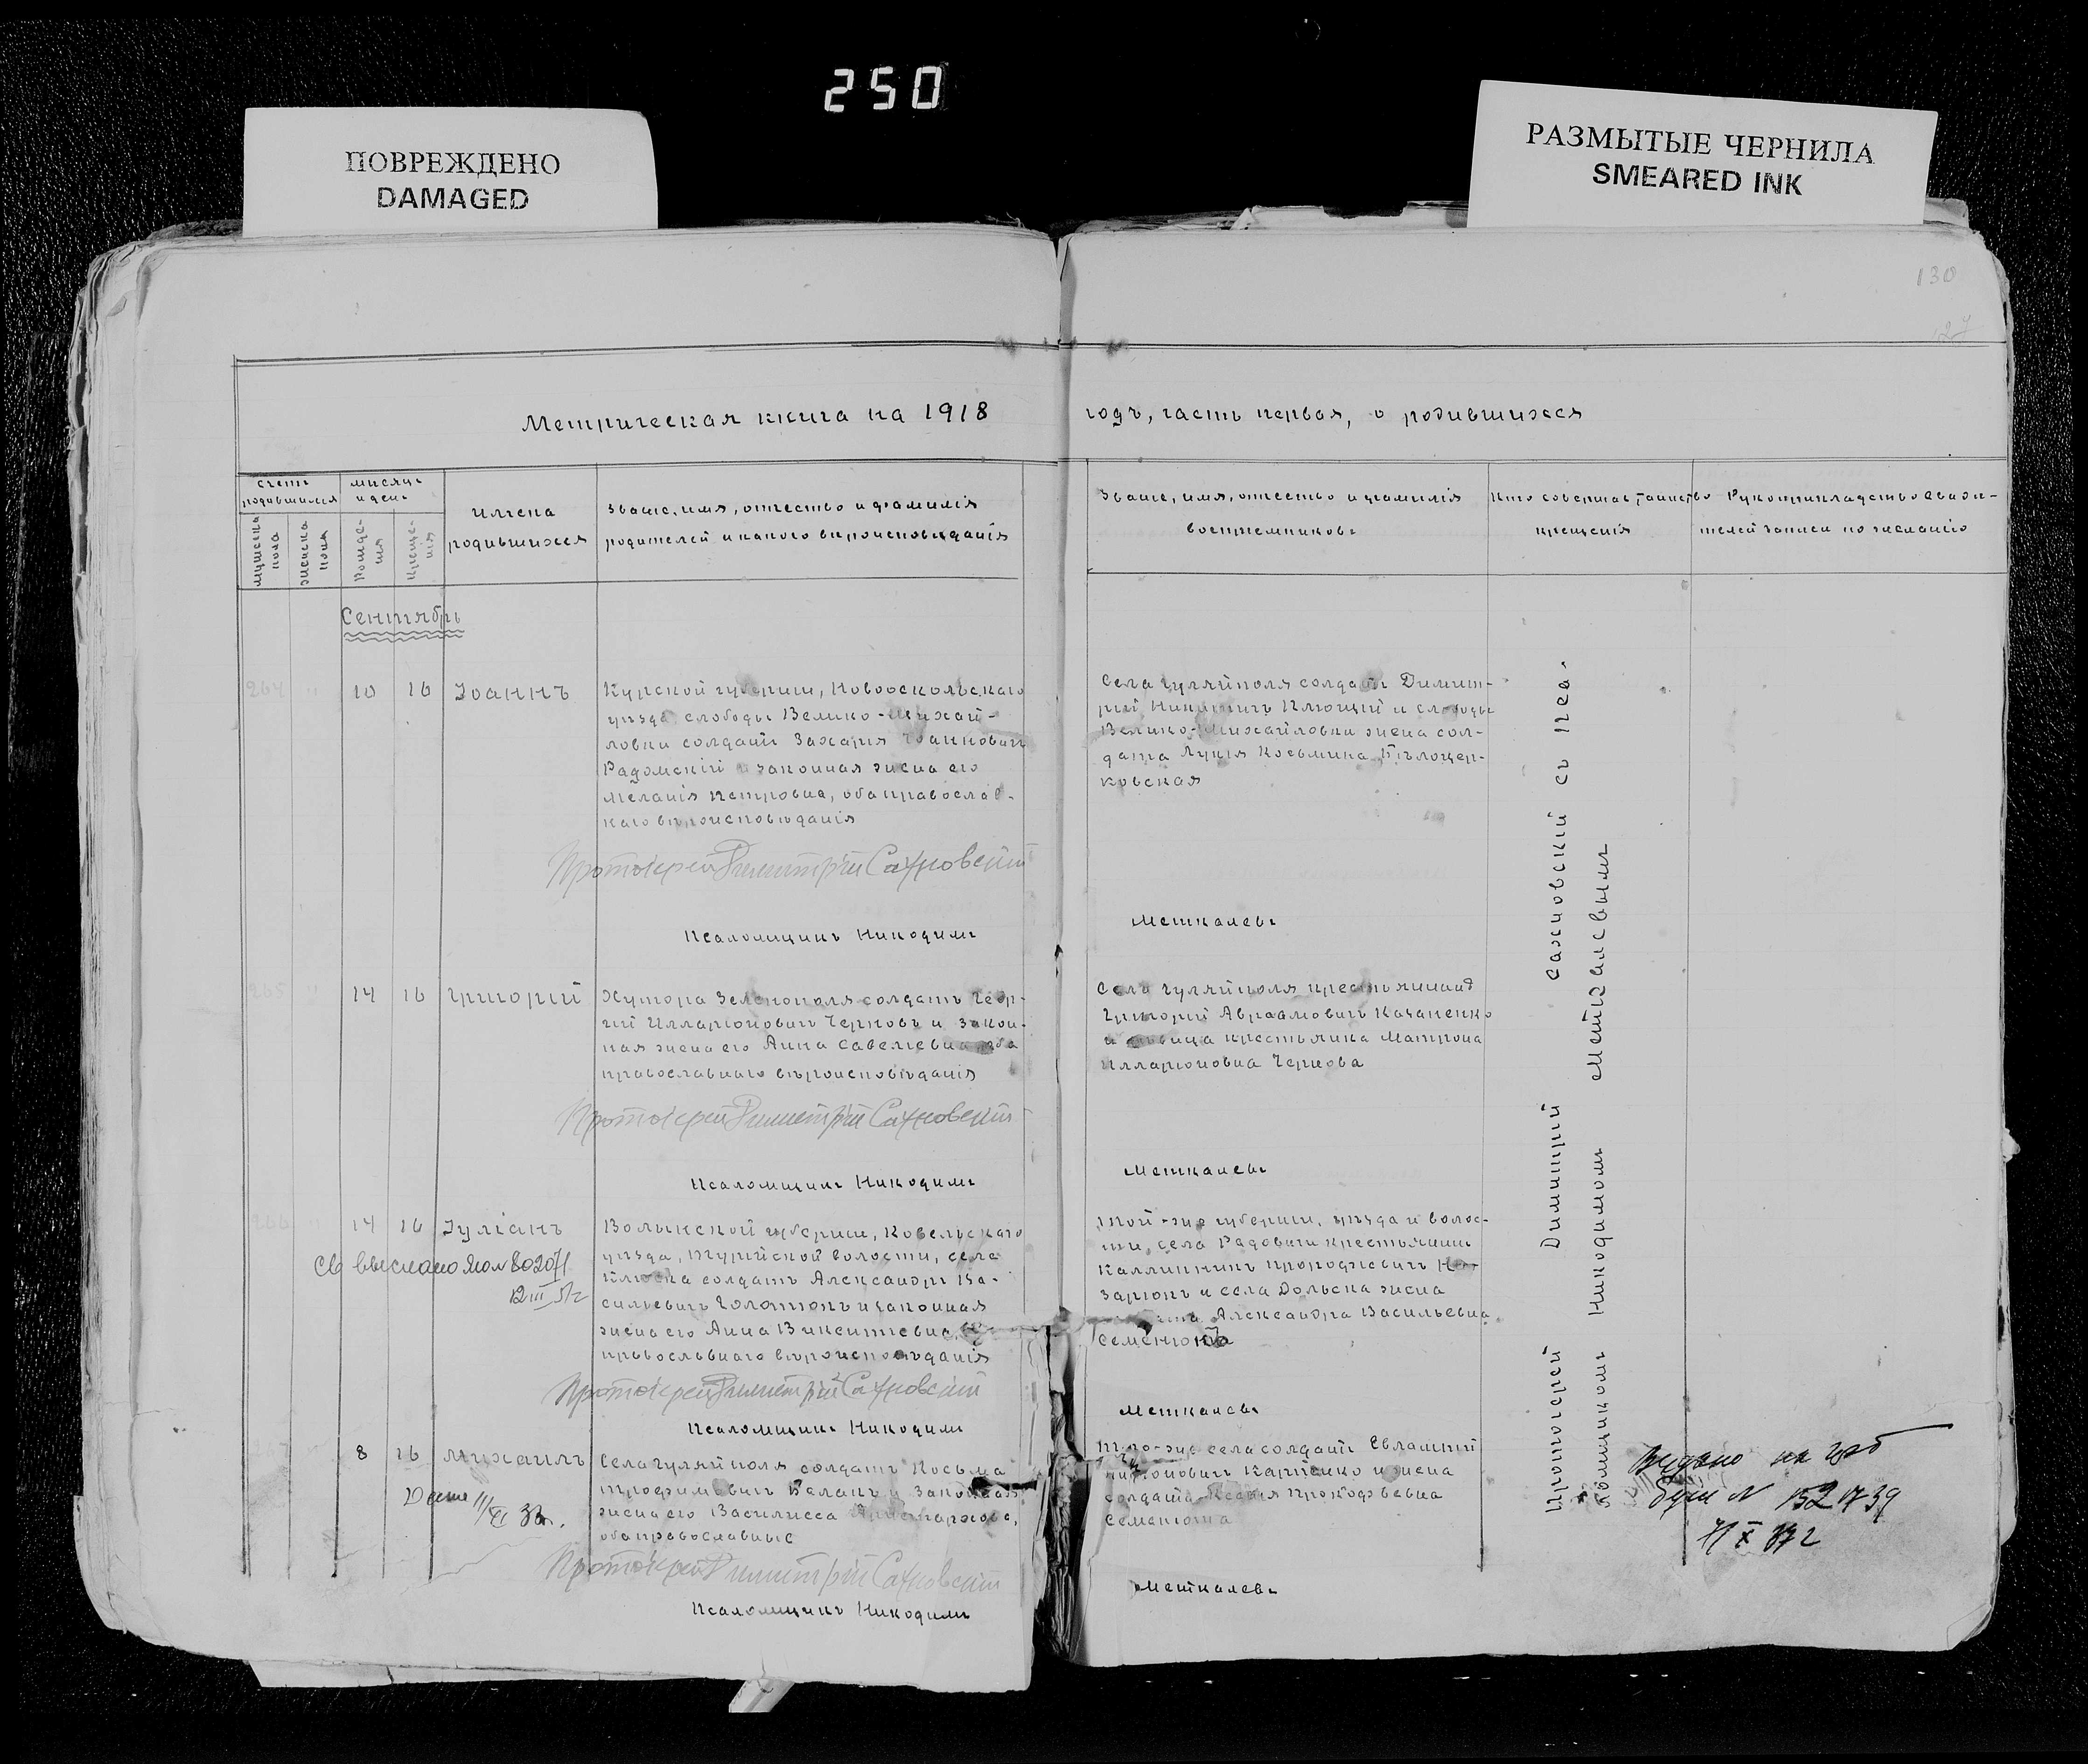 250
ПОВРЕЖДЕНО
DAMAGED
РАЗМЫТЫЕ ЧЕРНИЛА
SMEARED INK
130
Метрическая книга на 1918
годъ, часть первая, о родившихся
счетъ родившихся
мѣсяцъ и день
мужеска пола
женска пола
рожде-
нія
креще-
нія
имена
родившихся
Званіе, имя, отчество и фамилія
родителей и какого вѣроисповѣданія
Званіе, имя, отчество и фамилія
воспріемниковъ
Кто совершал таинство
крещенія
Рукоприкладство свидѣ-
телей записи по желанію
Сентябрь
264 " 10 16 Іоаннъ
Курской губерніи, Новооскольскаго
уѣзда, слободы Велико-Михай-
ловки солдатъ Захарія Іоанновичъ
Радомскій и законная жена его
Меланія Петровна, оба православ-
наго вѣроисповѣданія
Протоіерей Димитрій Сахновскій
Псаломщикъ Никодимъ
Села Гуляйполя солдатъ Димит-
рій Никитичъ и слободы
Велико-Михайловки жена сол-
дата Лукія Косьмина Бѣлоцер-
ковская
Меткалевъ
265 " 14 16 Григорій
Хутора Зеленополя солдатъ Геор-
гій Илларіоновичъ Черновъ и закон-
ная жена его Анна Савеліевна оба
православнаго вѣроисповѣданія
Протоіерей Димитрій Сахновскій
Псаломщикъ Никодимъ
Села Гуляйполя крестьянинъ
Григорій Авраамовичъ Казаненко
и дѣвица крестьянка Матрона
Илларіоновна Чернова
Меткалевъ
266 " 14 16 Іуліанъ
Св выслано
Волынской губерніи, Ковельскаго
уѣзда, Турійской волости, села
Клюска солдатъ Александръ Ва-
сильевичъ и законная
жена его Анна Викентіевна,
православнаго вѣроисповѣданія
Протоіерей Димитрій Сахновскій
Псаломщикъ Никодимъ
Той-же губерніи, уѣзда и волос-
ти, села Радовичи крестьянинъ
Каллиникъ Прокофіевичъ На-
зарюкъ и села Дольска жена
Александра Васильевна
Семенюкъ
Меткалевъ
267 " 8 16 Михаилъ
Села Гуляйполя солдатъ Косьма
Трофимовичъ Баланъ и законная
жена его Василисса Аристархова,
оба православные
Протоіерей Димитрій Сахновскій
Псаломщикъ Никодимъ
Того-же села солдатъ Евлампій
Карпенко и жена
солдата Ксенія Прокофьевна
Семенюта
Меткалевъ
Протоіерей Димитрій Сахновскій съ Пса-
ломщикомъ Никодимомъ Меткалевымъ
Выдано на
N 1521739